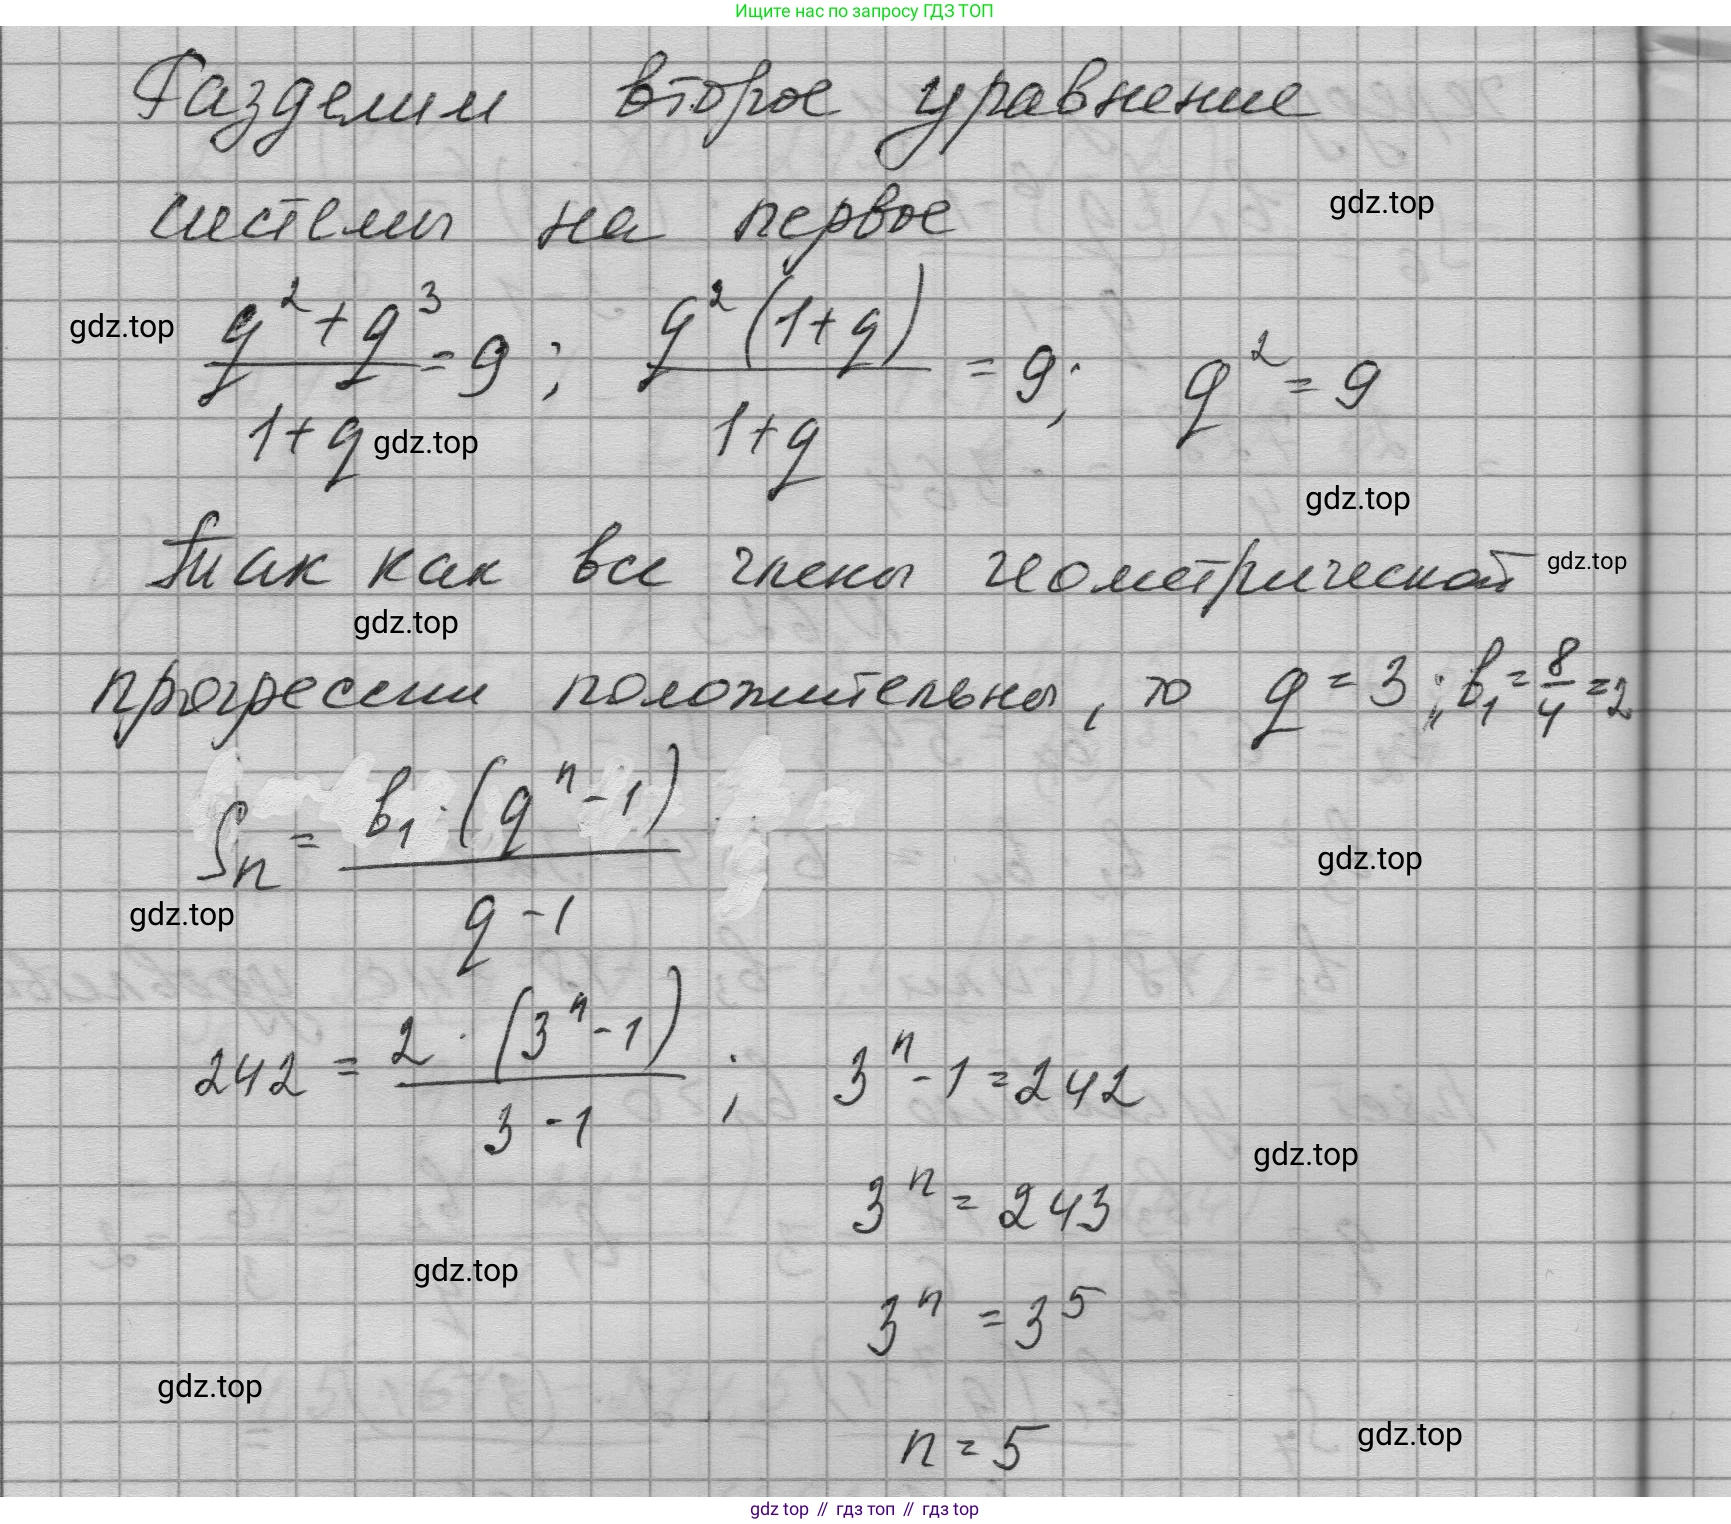 Ищите нас по запросу ГДЗ ТОП
Разделим второе уравнение
системы на первое
gdz.top
gdz.top
(q² + q³)/(1+q) = 9; (q²(1+q))/(1+q) = 9; q² = 9
gdz.top
gdz.top
Так как все члены геометрической
gdz.top
gdz.top
прогрессии положительны, то q = 3; b₁ = 8/4 = 2
Sₙ = (b₁·(qⁿ-1))/(q-1)
gdz.top
gdz.top
242 = (2·(3ⁿ-1))/(3-1); 3ⁿ-1=242
gdz.top
3ⁿ = 243
gdz.top
3ⁿ = 3⁵
gdz.top
n = 5
gdz.top
gdz top // гдз топ // гдз top